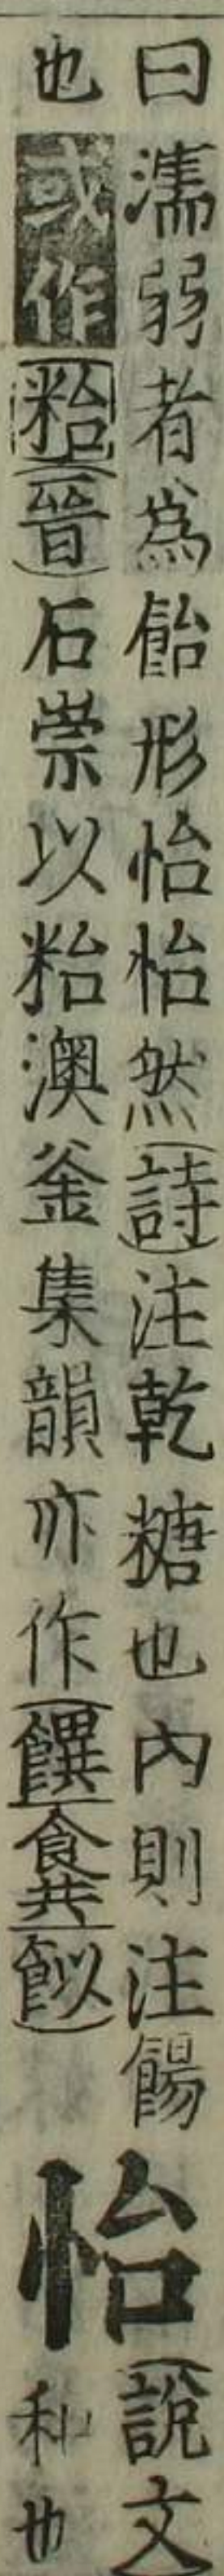 曰濡弱者爲飴形怡怡然詩注乾糖也內則注餳
也或作䊗晉石崇以䊗澳釜集韻亦作饌𩜾䬮
怡
說文
和也